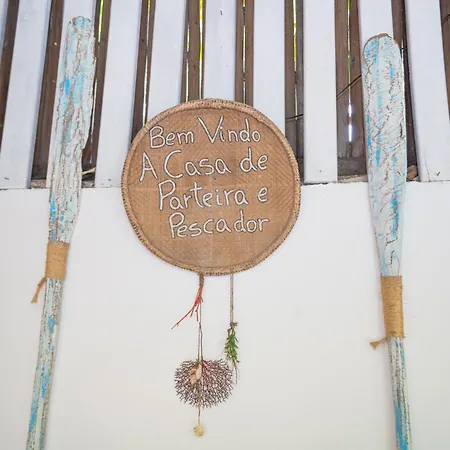 Bem Vindo
A Casa de
Parteira e
Pescador